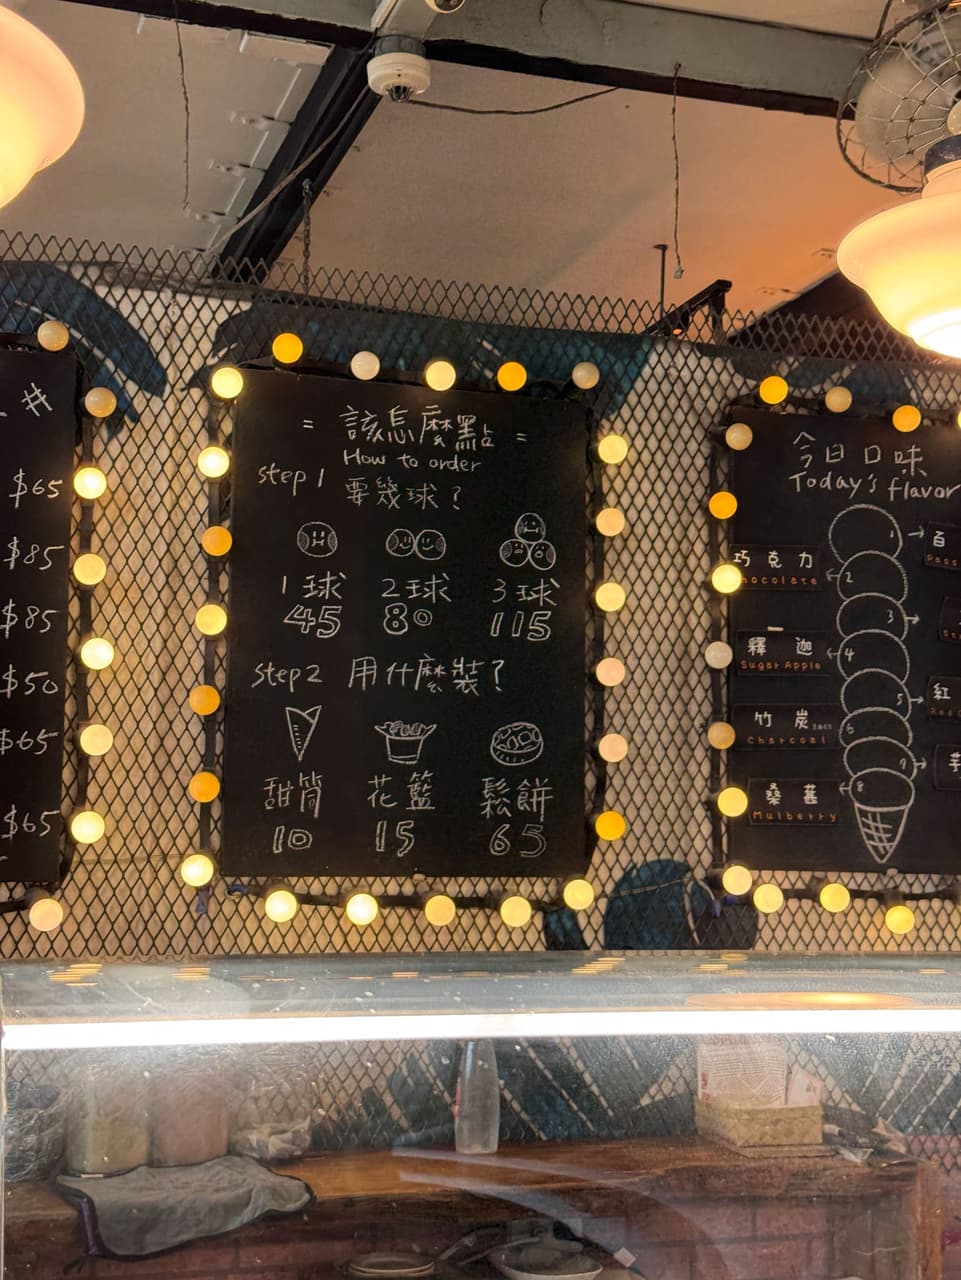 $65
$85
$85
$50
$65
$65
= 該怎麼點 =
How to order
step 1 要幾球？
1球 2球 3球
45 80 115
step 2 用什麼裝？
甜筒 花籃 鬆餅
10 15 65
今日口味
Today's flavor
1
巧克力
Chocolate
2
3
釋迦
Sugar Apple
4
紅
5
竹炭
Charcoal
6
7
桑葚
Mulberry
8